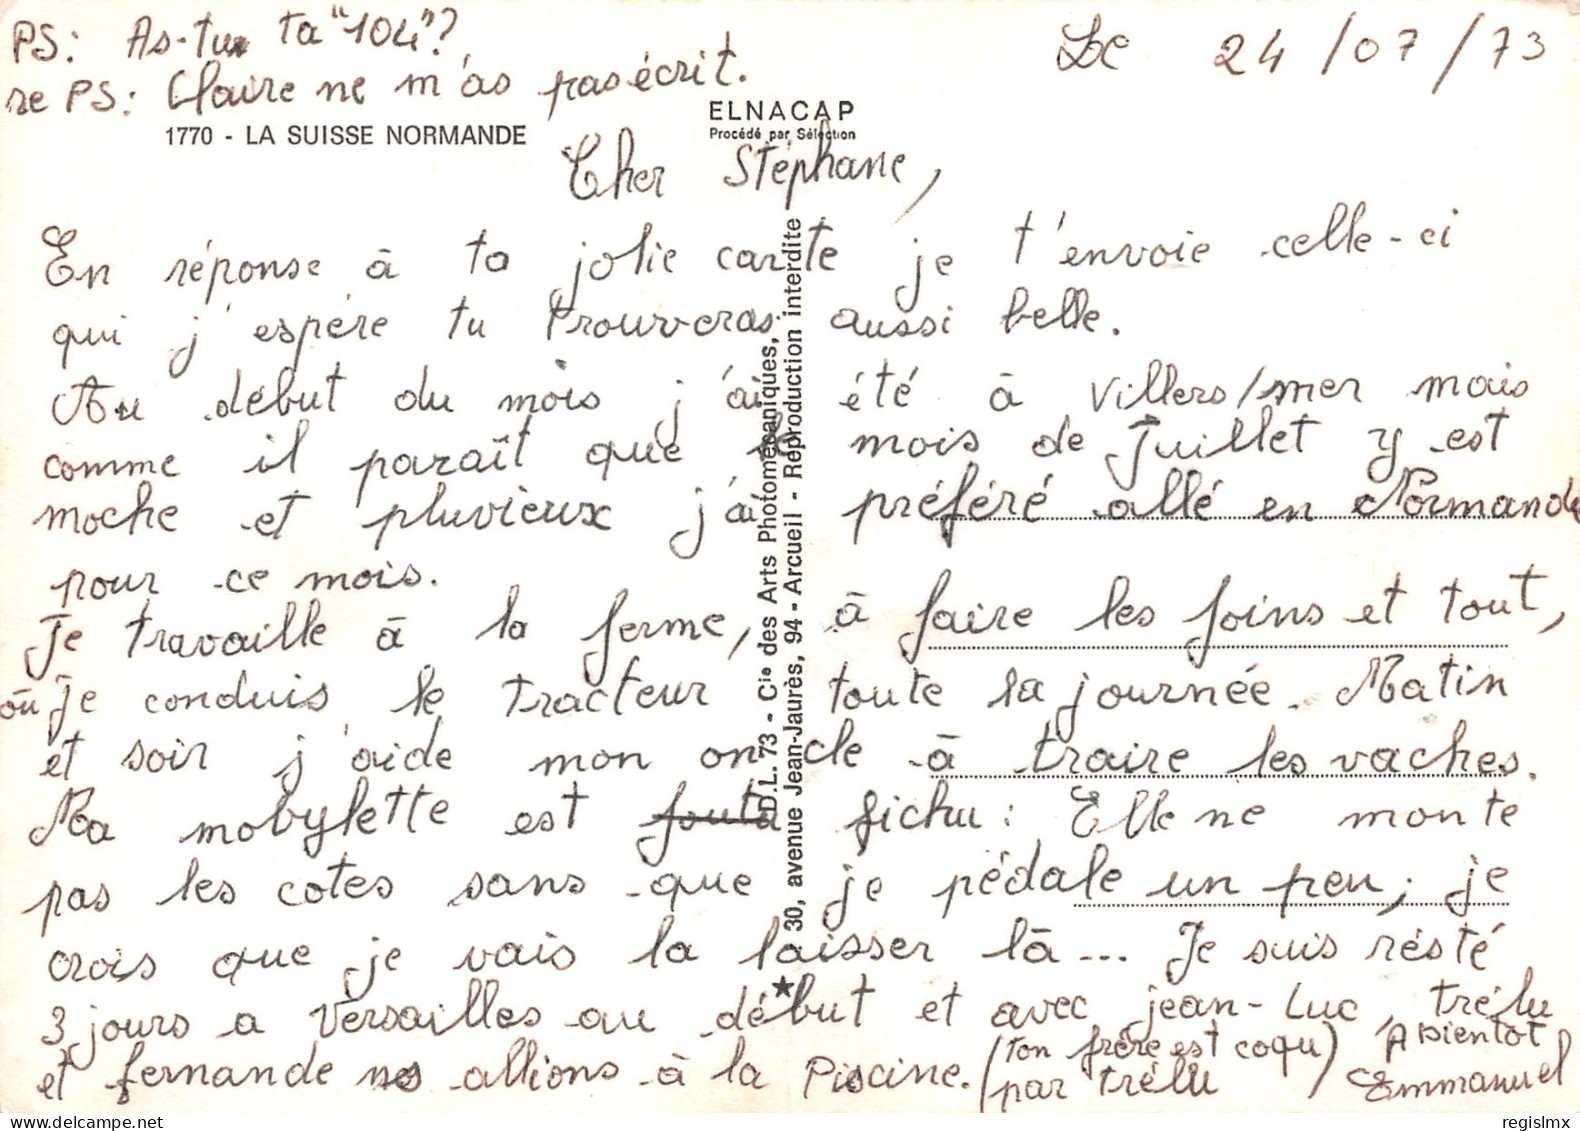 PS: As-tu ta "104"?
Le 24/07/73
re PS: Claire ne m'as pas écrit.
1770 - LA SUISSE NORMANDE
ELNACAP
Procédé par Sélection
Cher Stéphane,
En réponse à ta jolie carte je t'envoie celle-ci
qui j'espère tu trouveras aussi belle.
Au début du mois j'ai été à Villers/mer mais
comme il paraît que le mois de Juillet y est
moche et pluvieux j'ai préféré allé en Normandie
pour ce mois.
Je travaille à la ferme, à faire les foins et tout,
où je conduis le tracteur toute la journée. Matin
et soir j'aide mon oncle à traire les vaches.
Ma mobylette est foutu fichu: Elle ne monte
pas les cotes sans que je pédale un peu; je
crois que je vais la laisser là... Je suis résté
3 jours a Versailles au début et avec jean-Luc, trélu
et fernande ns allions à la Piscine. (ton frère est coqu) A Bientot
par trélu Emmanuel
D.L. 73 - Cie des Arts Photomécaniques,
30, avenue Jean-Jaurès, 94 - Arcueil - Reproduction interdite
regislmx